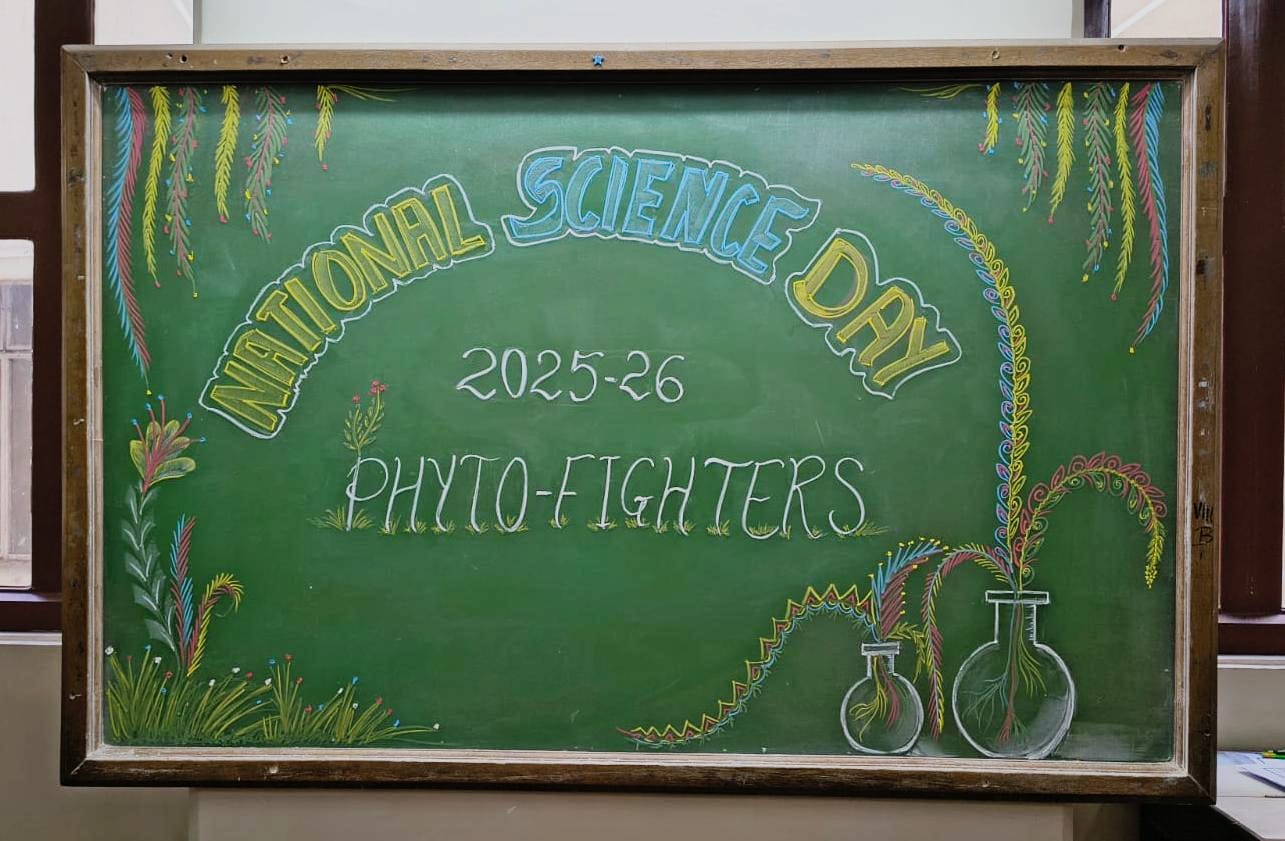 NATIONAL SCIENCE DAY
2025-26
PHYTO-FIGHTERS
VIII
B